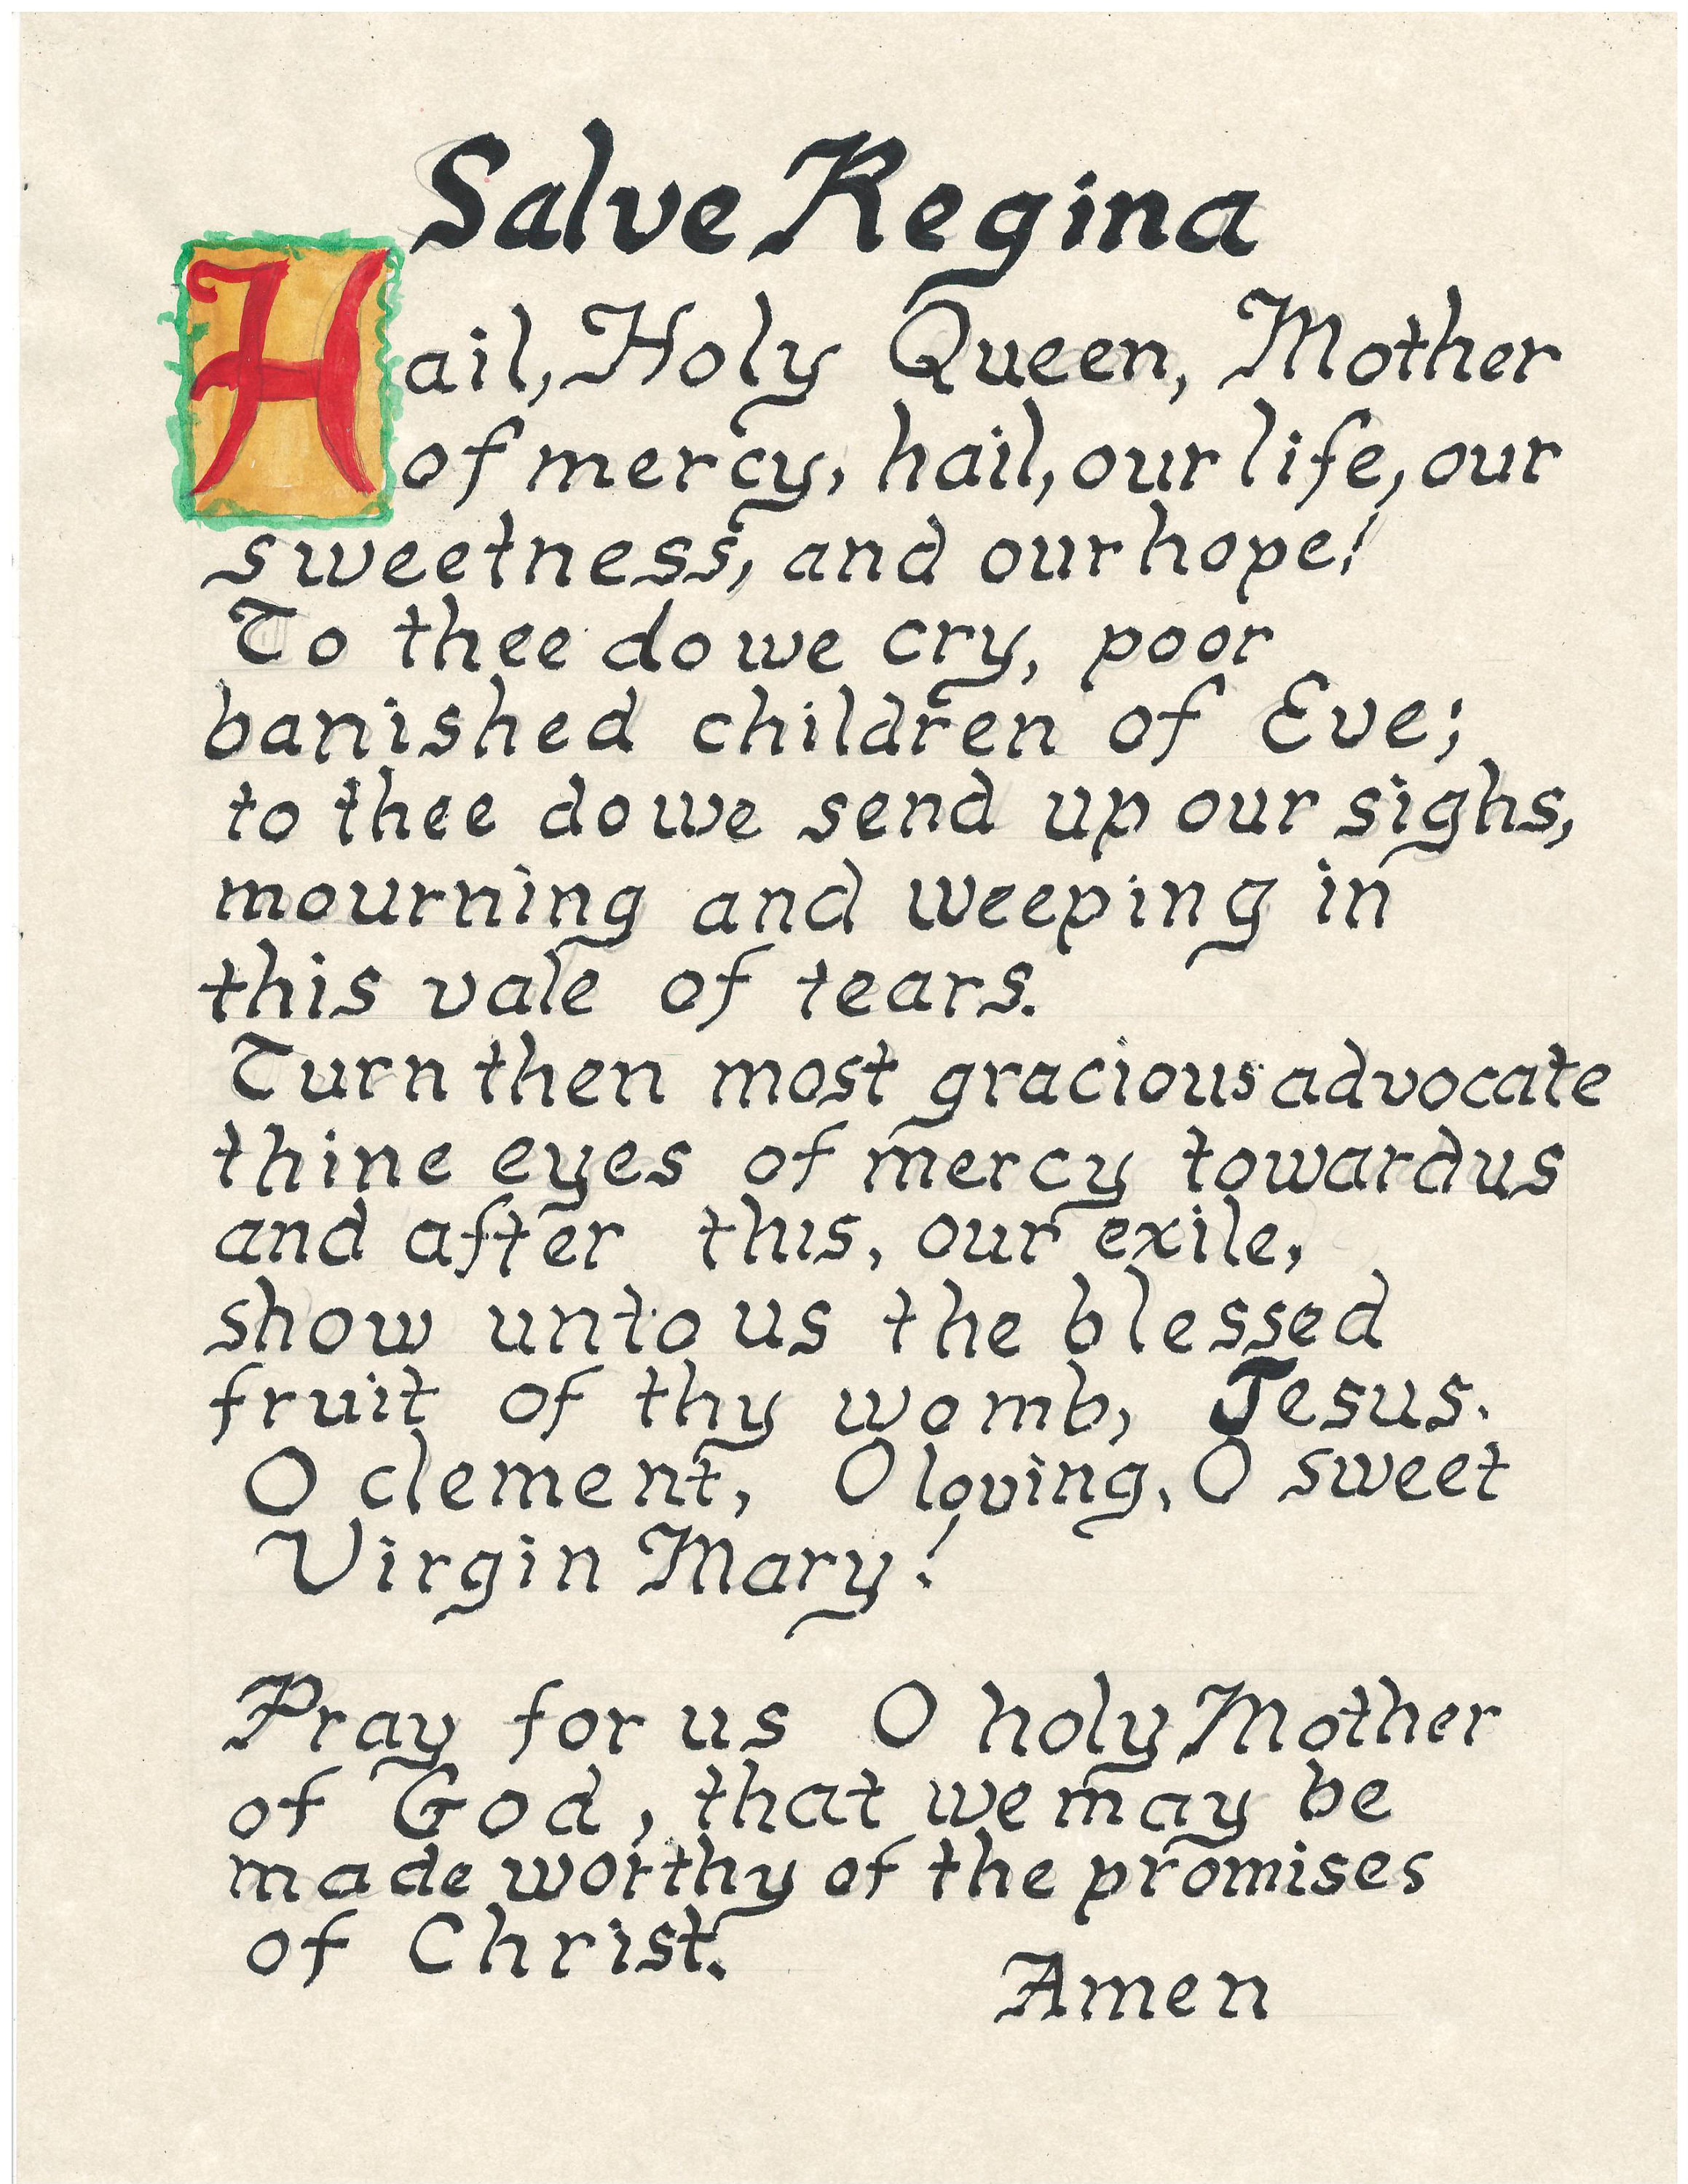 Salve Regina
Hail, Holy Queen, Mother
of mercy, hail, our life, our
sweetness, and our hope!
To thee do we cry, poor
banished children of Eve;
to thee do we send up our sighs,
mourning and weeping in
this vale of tears.
Turn then most gracious advocate
thine eyes of mercy toward us
and after this, our exile,
show unto us the blessed
fruit of thy womb, Jesus.
O clement, O loving, O sweet
Virgin Mary!
Pray for us O holy Mother
of God, that we may be
made worthy of the promises
of Christ.
Amen